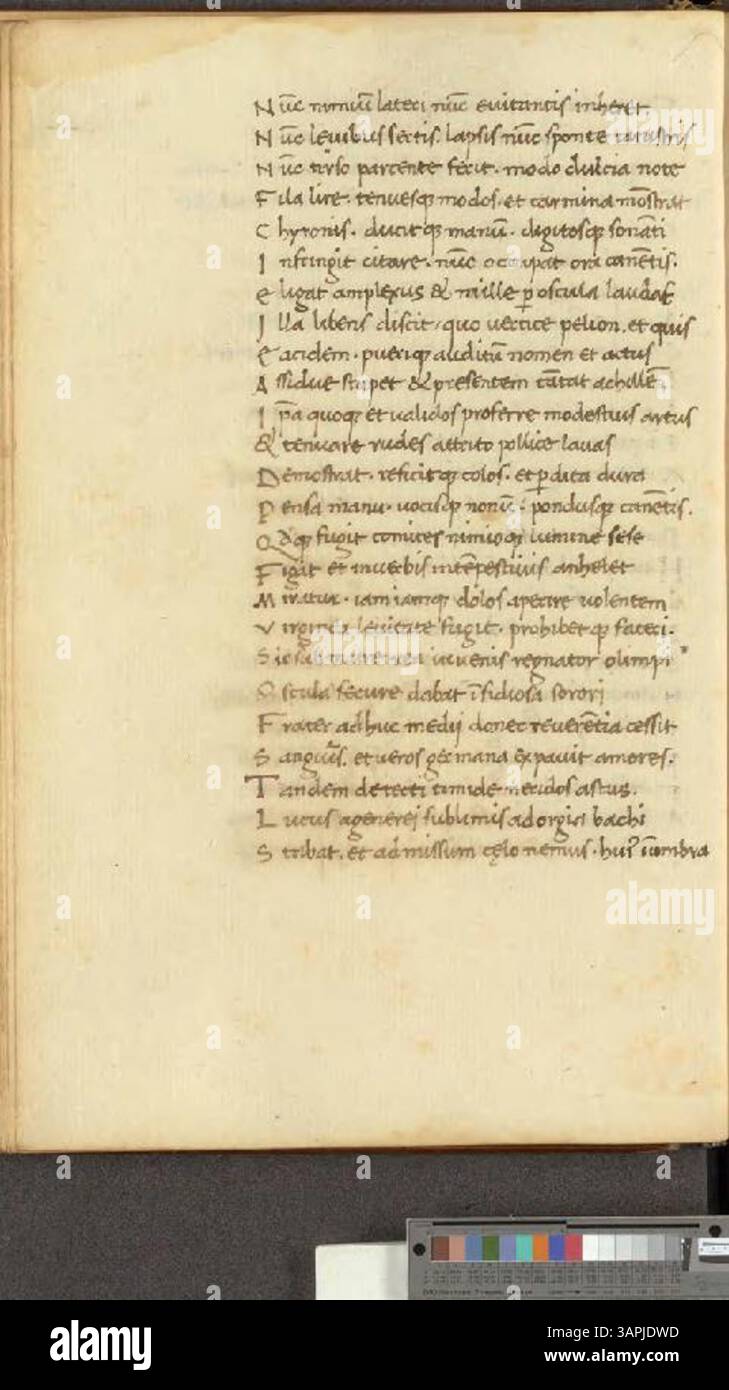 N ūc nimiū lateri nūc euitantis inheret
N ūc leuibus sertis. lapsis nūc sponte
N ūc tirso parcente ferit. modo dulcia note
F ila lire. tenuesq modos. et carmina mōstrat
C hyronis. ducitq manum. digitosq sonāti
I nfringit citare. nūc occupat ora canētis.
e ligat amplexus & mille p oscula laudat
I lla libens discit. quo uertice pelion. et quis
e acidem. pueriq auditū nomen et actus
A ssidue stupet & presentem cātat achillē
I pa quoq et ualidos proferre modestius artus
& tenuare rudes attrito pollice lanas
D emostrat. reficitq colos. et pdita dura
P ensa manu. uocisq sonum. pondusq canētis.
Q q fugit comites nimioq lumine sese
F igit et inuerbis intēpestiuis anhelet
M iratur. iam iamq dolos aperire uolentem
V irginea leuitate fugit. prohibetq fateri.
S ic iuuenis regnator olimpi
O scula secure dabat īsidiosa sorori
F rater adhuc medij donec reuerētia cessit
S anguīs. et ueros germana expauit amores.
T andem detecti timide nereidos astus.
L ucus agenorei sublimis ad orgia bachi
S tabat. et admissum cęlo nemus. hui' īumbra
alamy
Image ID: 3APJDWD
www.alamy.com